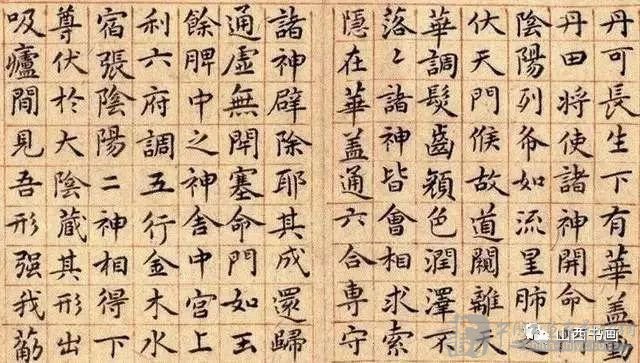 丹可長生下有華盖
丹田將使諸神開命
陰陽列布如流星肺
伏天門候故道闕離
華調髮齒顏色潤澤不
落〻諸神皆會相求索
隱在華盖通六合專守
諸神辟除耶其成還歸
通虛無閇塞命門如玉
餘脾中之神舍中宮上
利六府調五行金木水
宿張陰陽二神相得下
尊伏於大陰蔵其形出
吸廬間見吾形强我
山西书画